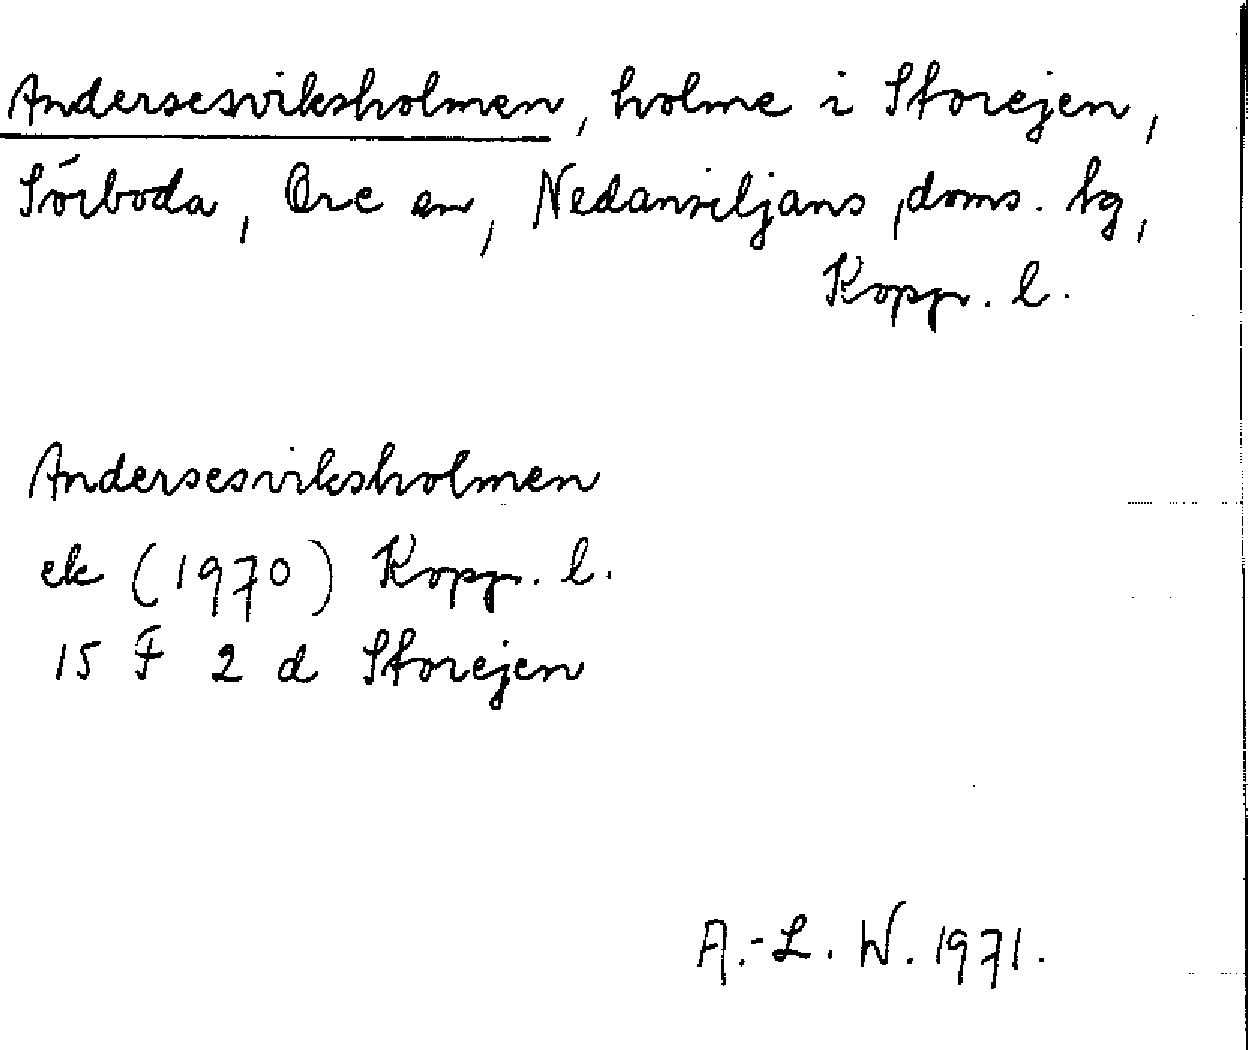 Andersesviksholmen, holme i Storejen,
Sörboda, Ore sn, Nedansiljans doms. hg,
Kopp. l.
Andersesviksholmen
ek (1970) Kopp. l.
15 F 2 d Storejen
A.-L. W. 1971.